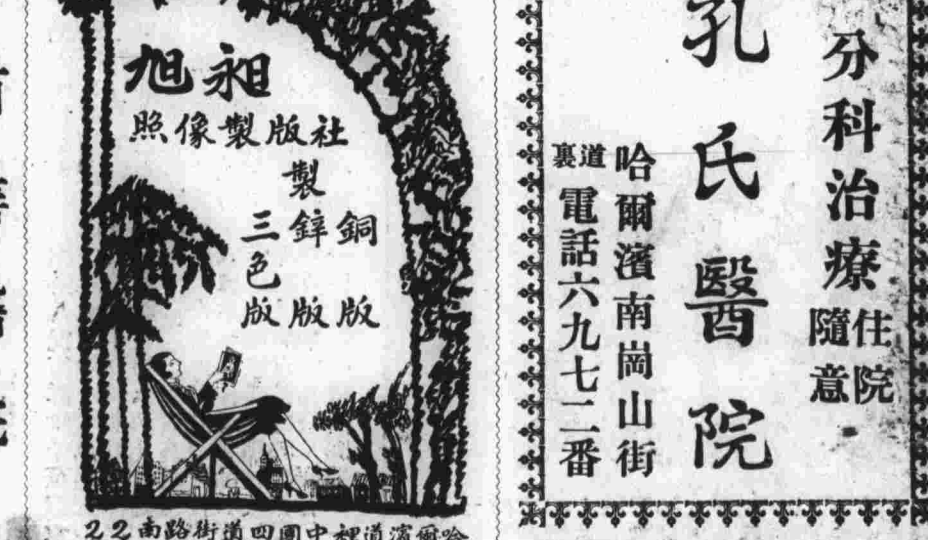 分科治療
住院
隨意
孔氏醫院
哈爾濱南崗山街
道裏電話六九七二番
旭昶
照像製版社
銅版
製鋅版
三色版
哈爾濱道裡中國四道街路南22